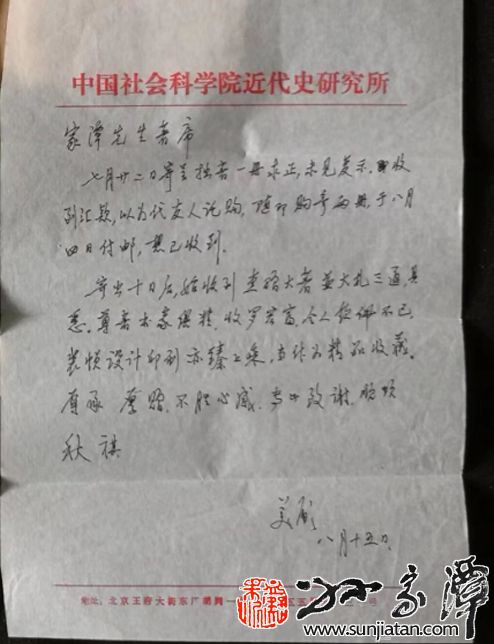 中国社会科学院近代史研究所
家潭先生著席
七月廿二日寄呈拙著一册求正,未见复示。收
到汇款,以为代友人托购,随即购寄两册,于八月
四日付邮,想已收到。
寄出十日后,始收到惠赐大著並大札三通,具
悉。尊著求索维精,收罗宏富,令人钦佩不已,
装帧设计印刷亦臻上乘,当作为精品收藏。
有承厚赠,不胜心感,专此致谢,顺颂
秋祺
八月十五日
地址:北京王府大街东厂胡同一
孙家潭
www.sunjiatan.com